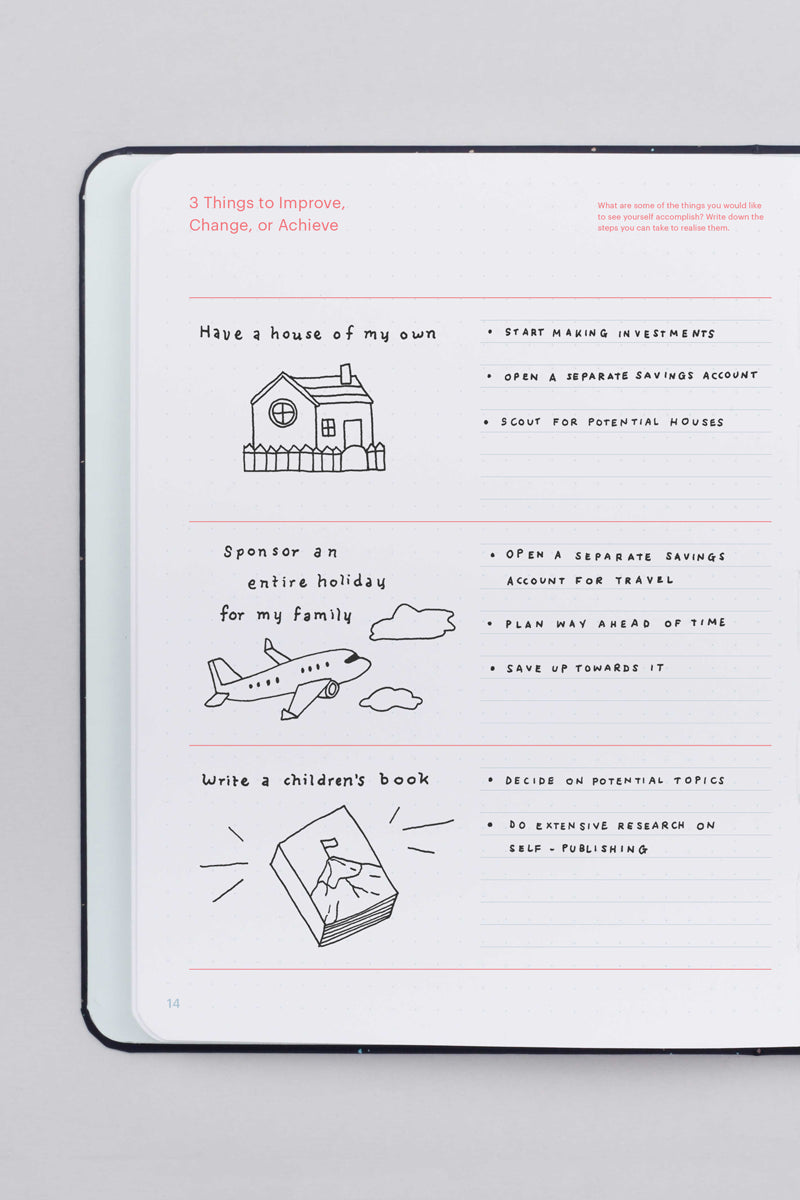 3 Things to Improve,
Change, or Achieve
What are some of the things you would like
to see yourself accomplish? Write down the
steps you can take to realise them.
Have a house of my own
• START MAKING INVESTMENTS
• OPEN A SEPARATE SAVINGS ACCOUNT
• SCOUT FOR POTENTIAL HOUSES
Sponsor an
entire holiday
for my family
• OPEN A SEPARATE SAVINGS
ACCOUNT FOR TRAVEL
• PLAN WAY AHEAD OF TIME
• SAVE UP TOWARDS IT
Write a children's book
• DECIDE ON POTENTIAL TOPICS
• DO EXTENSIVE RESEARCH ON
SELF - PUBLISHING
14